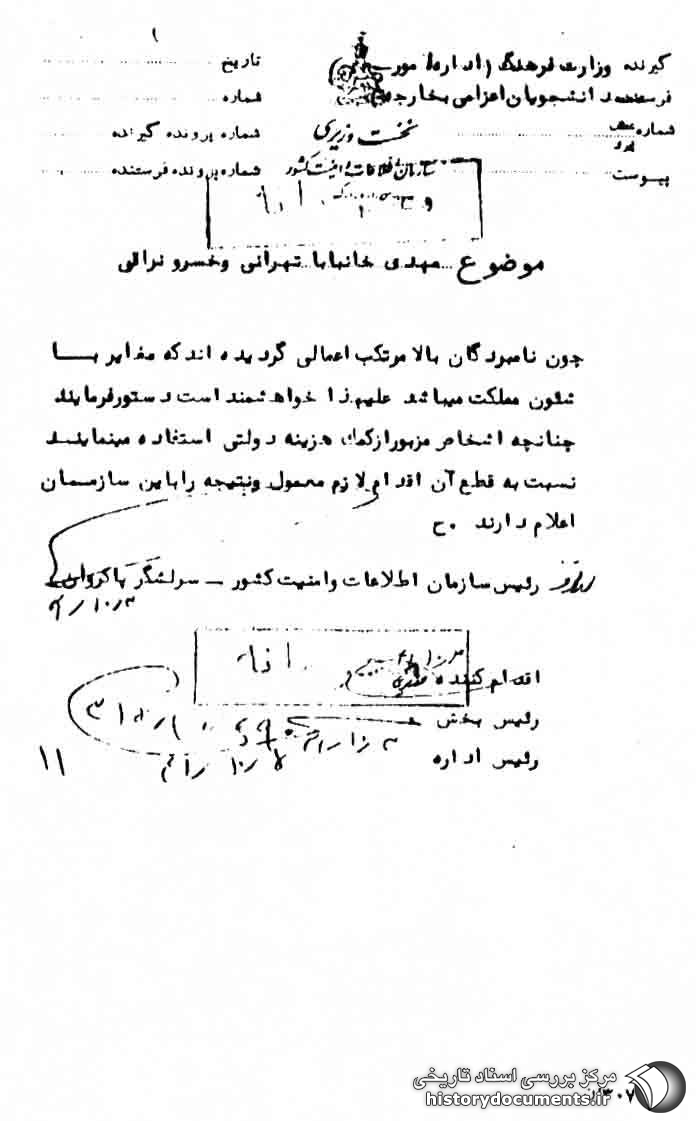 گیرنده وزارت فرهنگ (اداره امور
فرستنده دانشجویان اعزامی بخارجه)
شماره
پیوست
نخست وزیری
سازمان اطلاعات و امنیت کشور
تاریخ
شماره
شماره پرونده گیرنده
شماره پرونده فرستنده
موضوع مهدی خانبابا تهرانی وخسرو نراقی
چون نامبردگان بالا مرتکب اعمالی گردیده اند که مغایر با
شئون مملکت میباشد علیهذا خواهشمند است دستورفرمایند
چنانچه اشخاص مزبور ازکمک هزینه دولتی استفاده مینمایند
نسبت به قطع آن اقدام لازم معمول ونتیجه را باین سازمان
اعلام دارند ح.
رئیس سازمان اطلاعات وامنیت کشور – سرلشگر پاکروان
اقدام کننده
رئیس بخش
رئیس اداره
۱۱
مرکز بررسی اسناد تاریخی
historydocuments.ir
۳۰۷